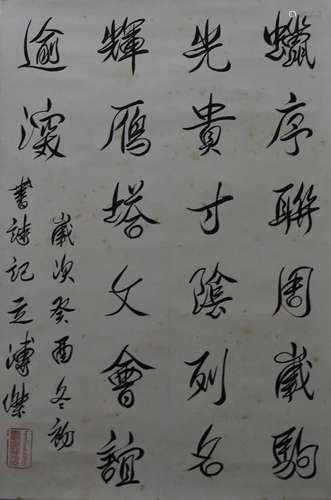 蠟序聯周歲駒
光貴寸陰列名
輝雁塔文會誼
逾深
歲次癸酉冬初
書謎記之溥傑